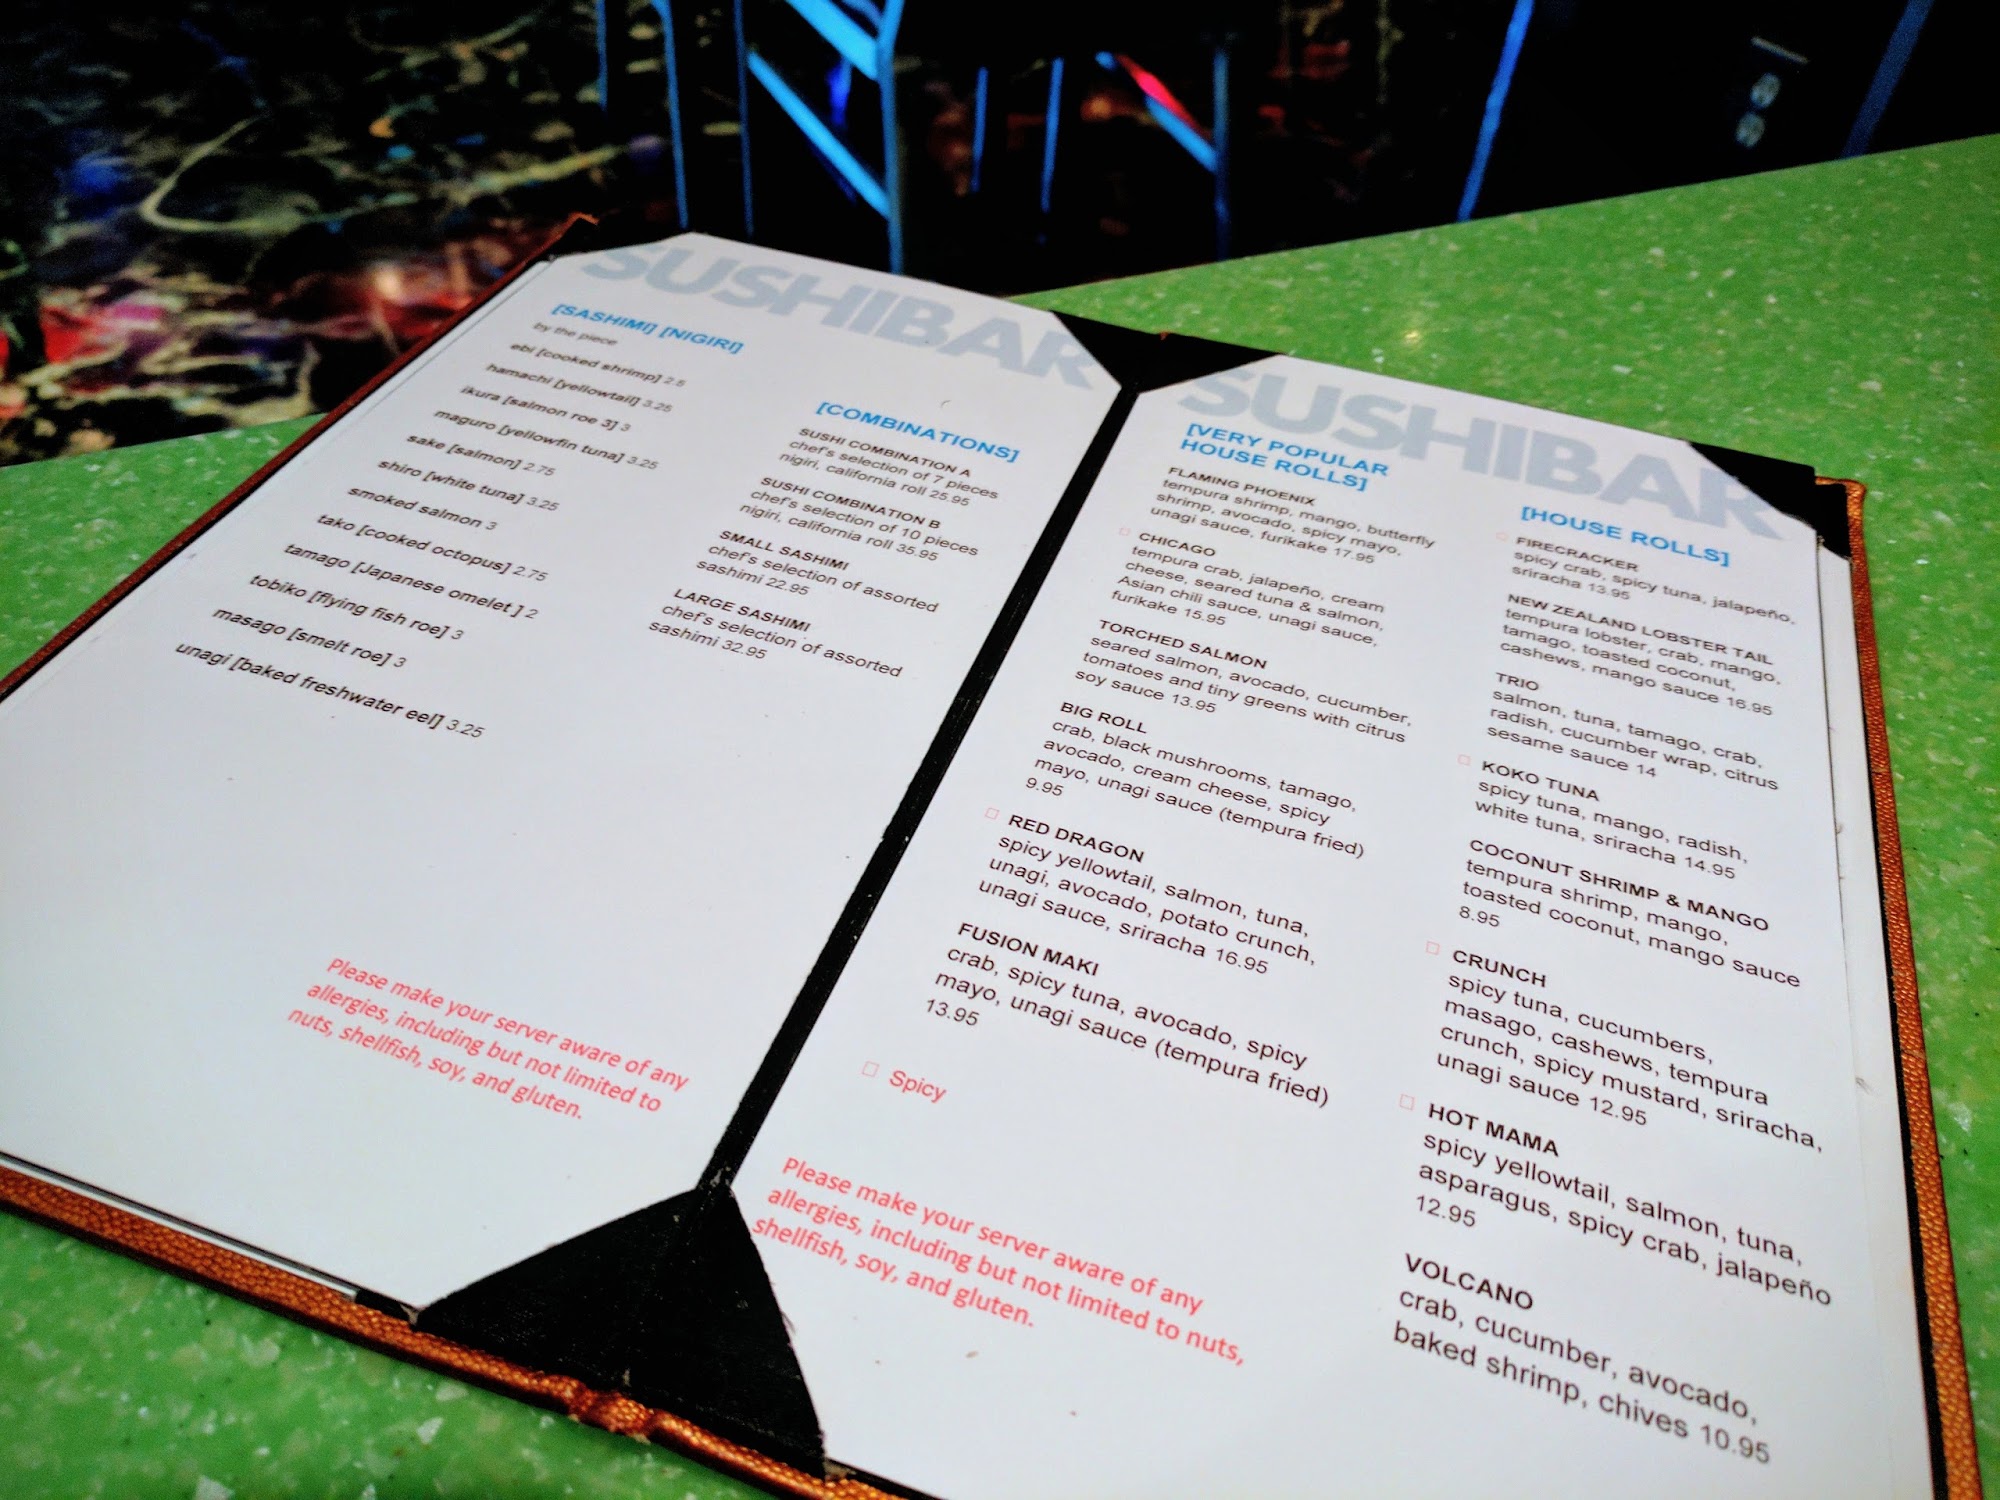 SUSHIBAR
[SASHIMI] [NIGIRI]
by the piece
ebi [cooked shrimp] 2.5
hamachi [yellowtail] 3.25
ikura [salmon roe 3] 3
maguro [yellowfin tuna] 3.25
sake [salmon] 2.75
shiro [white tuna] 3.25
smoked salmon 3
tako [cooked octopus] 2.75
tamago [Japanese omelet ] 2
tobiko [flying fish roe] 3
masago [smelt roe] 3
unagi [baked freshwater eel] 3.25
[COMBINATIONS]
SUSHI COMBINATION A
chef's selection of 7 pieces
nigiri, california roll 25.95
SUSHI COMBINATION B
chef's selection of 10 pieces
nigiri, california roll 35.95
SMALL SASHIMI
chef's selection of assorted
sashimi 22.95
LARGE SASHIMI
chef's selection of assorted
sashimi 32.95
Please make your server aware of any
allergies, including but not limited to
nuts, shellfish, soy, and gluten.
SUSHIBAR
[VERY POPULAR
HOUSE ROLLS]
FLAMING PHOENIX
tempura shrimp, mango, butterfly
shrimp, avocado, spicy mayo,
unagi sauce, furikake 17.95
□ CHICAGO
tempura crab, jalapeño, cream
cheese, seared tuna & salmon,
Asian chili sauce, unagi sauce,
furikake 15.95
TORCHED SALMON
seared salmon, avocado, cucumber,
tomatoes and tiny greens with citrus
soy sauce 13.95
BIG ROLL
crab, black mushrooms, tamago,
avocado, cream cheese, spicy
mayo, unagi sauce (tempura fried)
9.95
□ RED DRAGON
spicy yellowtail, salmon, tuna,
unagi, avocado, potato crunch,
unagi sauce, sriracha 16.95
FUSION MAKI
crab, spicy tuna, avocado, spicy
mayo, unagi sauce (tempura fried)
13.95
□ Spicy
Please make your server aware of any
allergies, including but not limited to nuts,
shellfish, soy, and gluten.
[HOUSE ROLLS]
□ FIRECRACKER
spicy crab, spicy tuna, jalapeño,
sriracha 13.95
NEW ZEALAND LOBSTER TAIL
tempura lobster, crab, mango,
tamago, toasted coconut,
cashews, mango sauce 16.95
TRIO
salmon, tuna, tamago, crab,
radish, cucumber wrap, citrus
sesame sauce 14
□ KOKO TUNA
spicy tuna, mango, radish,
white tuna, sriracha 14.95
COCONUT SHRIMP & MANGO
tempura shrimp, mango,
toasted coconut, mango sauce
8.95
□ CRUNCH
spicy tuna, cucumbers,
masago, cashews, tempura
crunch, spicy mustard, sriracha,
unagi sauce 12.95
□ HOT MAMA
spicy yellowtail, salmon, tuna,
asparagus, spicy crab, jalapeño
12.95
VOLCANO
crab, cucumber, avocado,
baked shrimp, chives 10.95